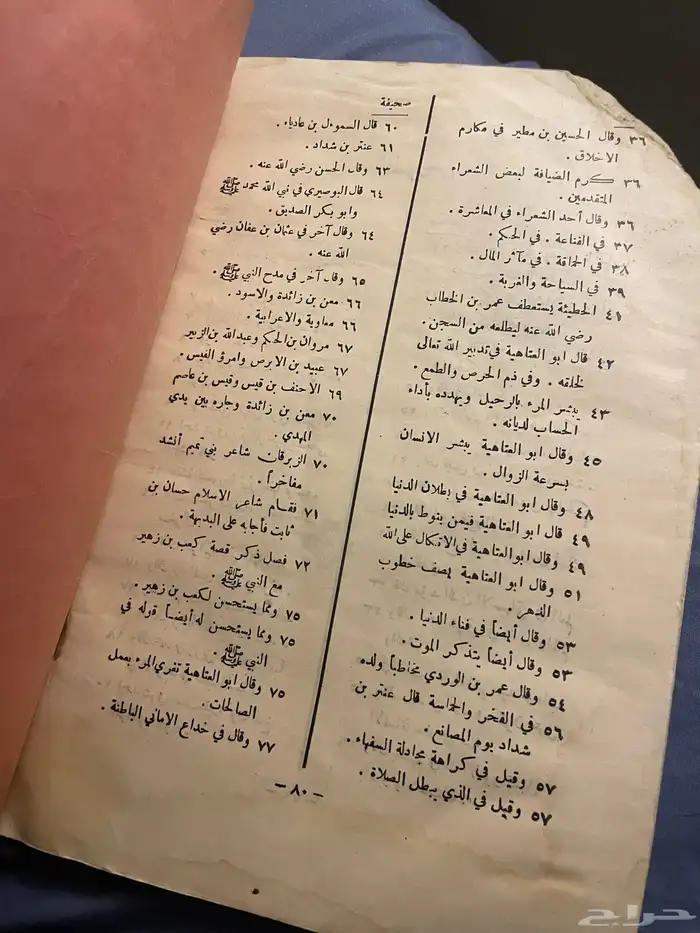 ٣٦ وقال الحسين بن مطير في مكارم
الاخلاق .
٣٦ كرم الضيافة لبعض الشعراء
المتقدمين .
٣٦ وقال أحد الشعراء في المعاشرة .
٣٧ في القناعة . في الحكم .
٣٨ في الحماقة . في مآثر المال .
٣٩ في السياحة والغربة .
٤١ الحطيئة يستعطف عمر بن الخطاب
رضي الله عنه ليطلعه من السجن .
٤٢ قال ابو العتاهية في تدبير الله تعالى
لخلقه . وفي ذم الحرص والطمع .
٤٣ يبشر المرء بالرحيل ويهدده بأداء
الحساب لديانه .
٤٥ وقال ابو العتاهية يبشر الانسان
بسرعة الزوال .
٤٨ وقال ابو العتاهية في بطلان الدنيا
٤٩ قال ابو العتاهية فيمن ينوط بالدنيا
٤٩ وقال ابو العتاهية في الاتكال على الله
٥١ وقال ابو العتاهية يصف خطوب
الدهر .
٥٣ وقال أيضاً في فناء الدنيا .
٥٣ وقال أيضاً يتذكر الموت .
٥٤ وقال عمر بن الوردي مخاطباً ولده
٥٦ في الفخر والحماسة قال عنتر بن
شداد يوم المصانع .
٥٧ وقيل في كراهة مجادلة السفهاء .
٥٧ وقيل في الذي يبطل الصلاة .
صحيفة
٦٠ قال السموءل بن عادياء .
٦١ عنتر بن شداد .
٦٣ وقال الحسن رضي الله عنه .
٦٤ قال البوصيري في نبي الله محمد ﷺ
وابو بكر الصديق .
٦٤ وقال آخر في عثمان بن عفان رضي
الله عنه .
٦٥ وقال آخر في مدح النبي ﷺ .
٦٦ معن بن زائدة والاسود .
٦٦ معاوية والاعرابية .
٦٧ مروان بن الحكم وعبد الله بن الزبير
٦٧ عبيد بن الابرص وامرؤ القيس .
٦٩ الاحنف بن قيس وقيس بن عاصم
٧٠ معن بن زائدة وجاره بين يدي
المهدي .
٧٠ الزبرقان شاعر بني تميم أنشد
مفاخراً .
٧١ فقام شاعر الاسلام حسان بن
ثابت فأجابه على البديهة .
٧٢ فصل ذكر قصة كعب بن زهير
مع النبي ﷺ .
٧٥ ومما يستحسن لكعب بن زهير .
٧٥ ومما يستحسن له أيضاً قوله في
النبي ﷺ .
٧٥ وقال ابو العتاهية تغري المرء بعمل
الصالحات .
٧٧ وقال في خداع الاماني الباطنة .
— ٨٠ —
حراج